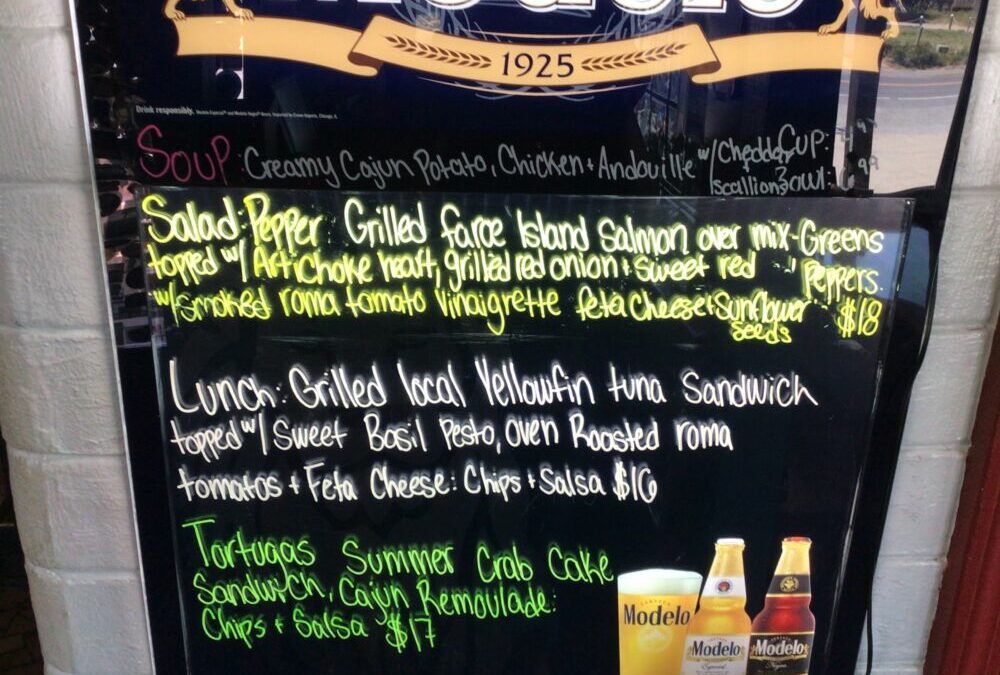 Modelo
1925
Drink responsibly.
Soup: Creamy Cajun Potato, Chicken + Andouille w/Cheddar Cup:
+ scallion Bowl:
Salad: Pepper Grilled Faroe Island Salmon over mix-Greens
topped w/ Artichoke heart, grilled red onion + sweet red peppers.
w/smoked roma tomato vinaigrette feta cheese + Sunflower $18
seeds
Lunch: Grilled local Yellowfin tuna Sandwich
topped w/ Sweet Basil Pesto, oven Roasted roma
tomatos + Feta Cheese: Chips + Salsa $16
Tortugas Summer Crab Cake
Sandwich, Cajun Remoulade:
Chips + Salsa $17
Modelo
Modelo
Especial
Modelo
Negra